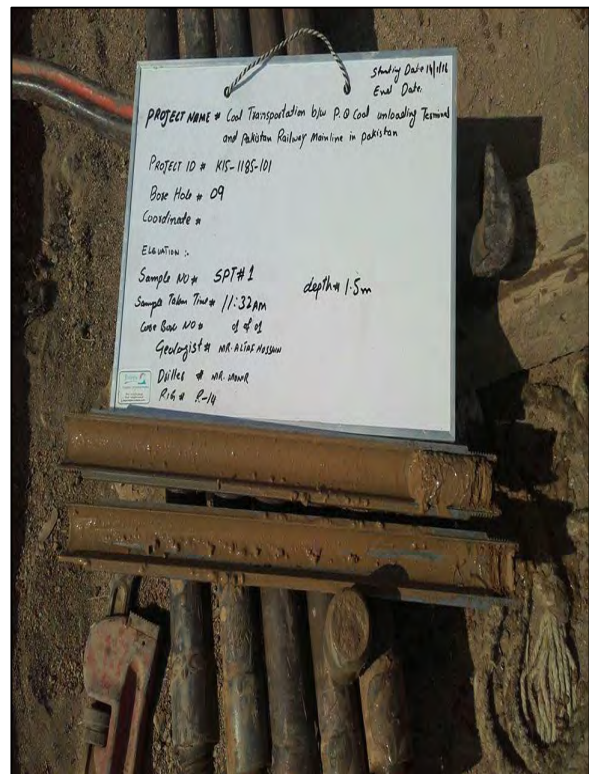 Starting Date 14/1/16
End Date:
PROJECT NAME # Coal Transportation b/w P.Q Coal unloading Terminal
and Pakistan Railway Mainline in pakistan
PROJECT ID # K15-1185-101
Bore Hole # 09
Coordinate #
ELEVATION :-
Sample NO # SPT#1
depth# 1.5m
Sample Taken Time # 11:32AM
Core Box NO # 01 of 01
Geologist # MR.
Driller # MR.
RIG # R-14